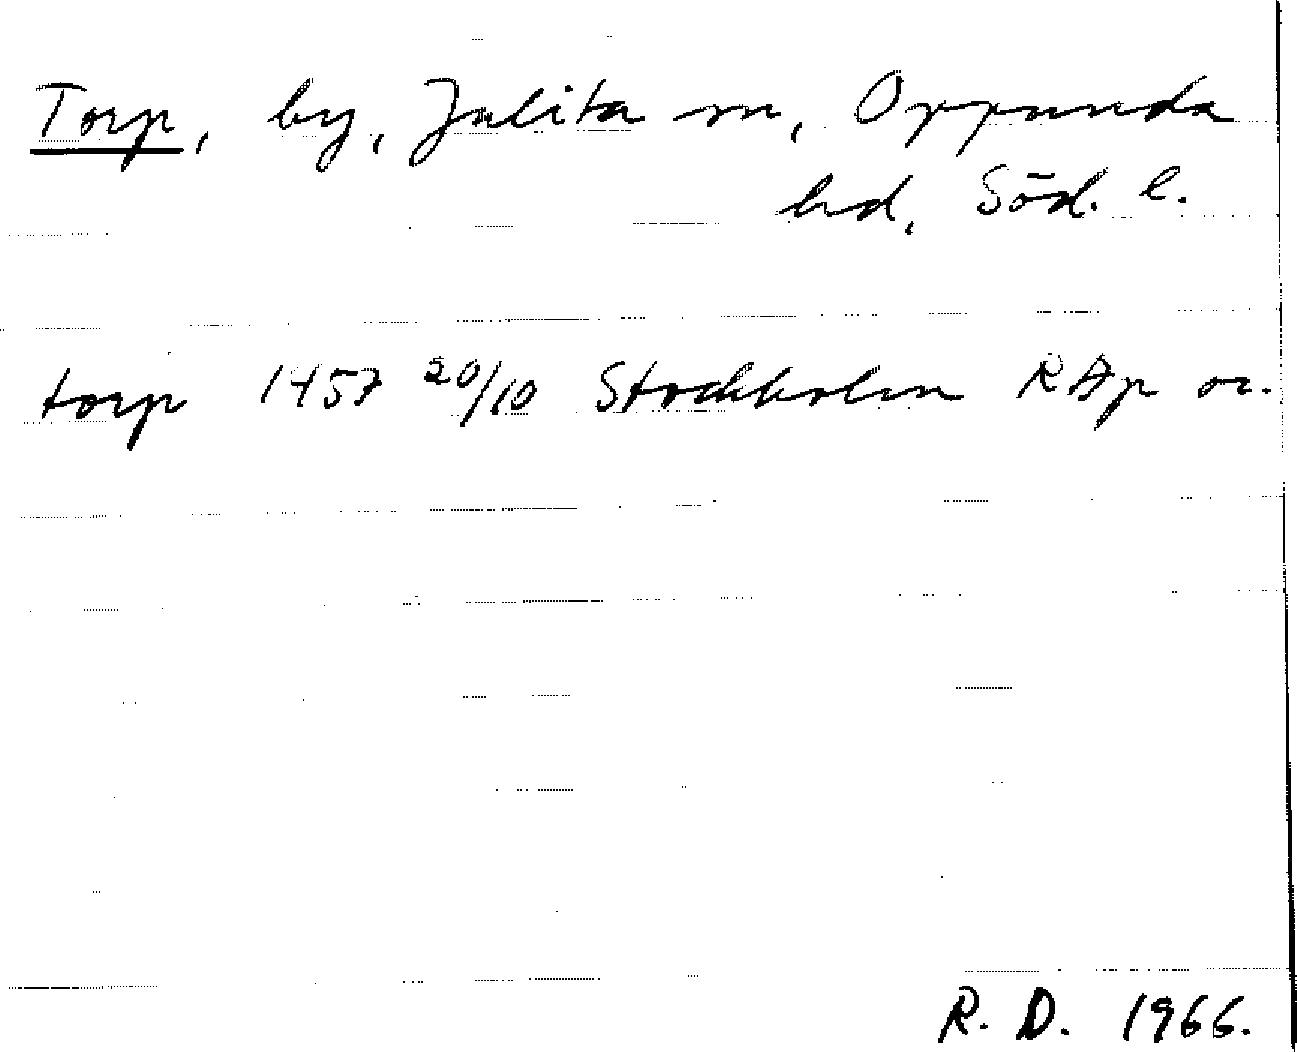 Torp, by, Julita sn, Oppunda
hd, Söd. l.
torp 1457 20/10 Stockholm RAp or.
R. D. 1966.